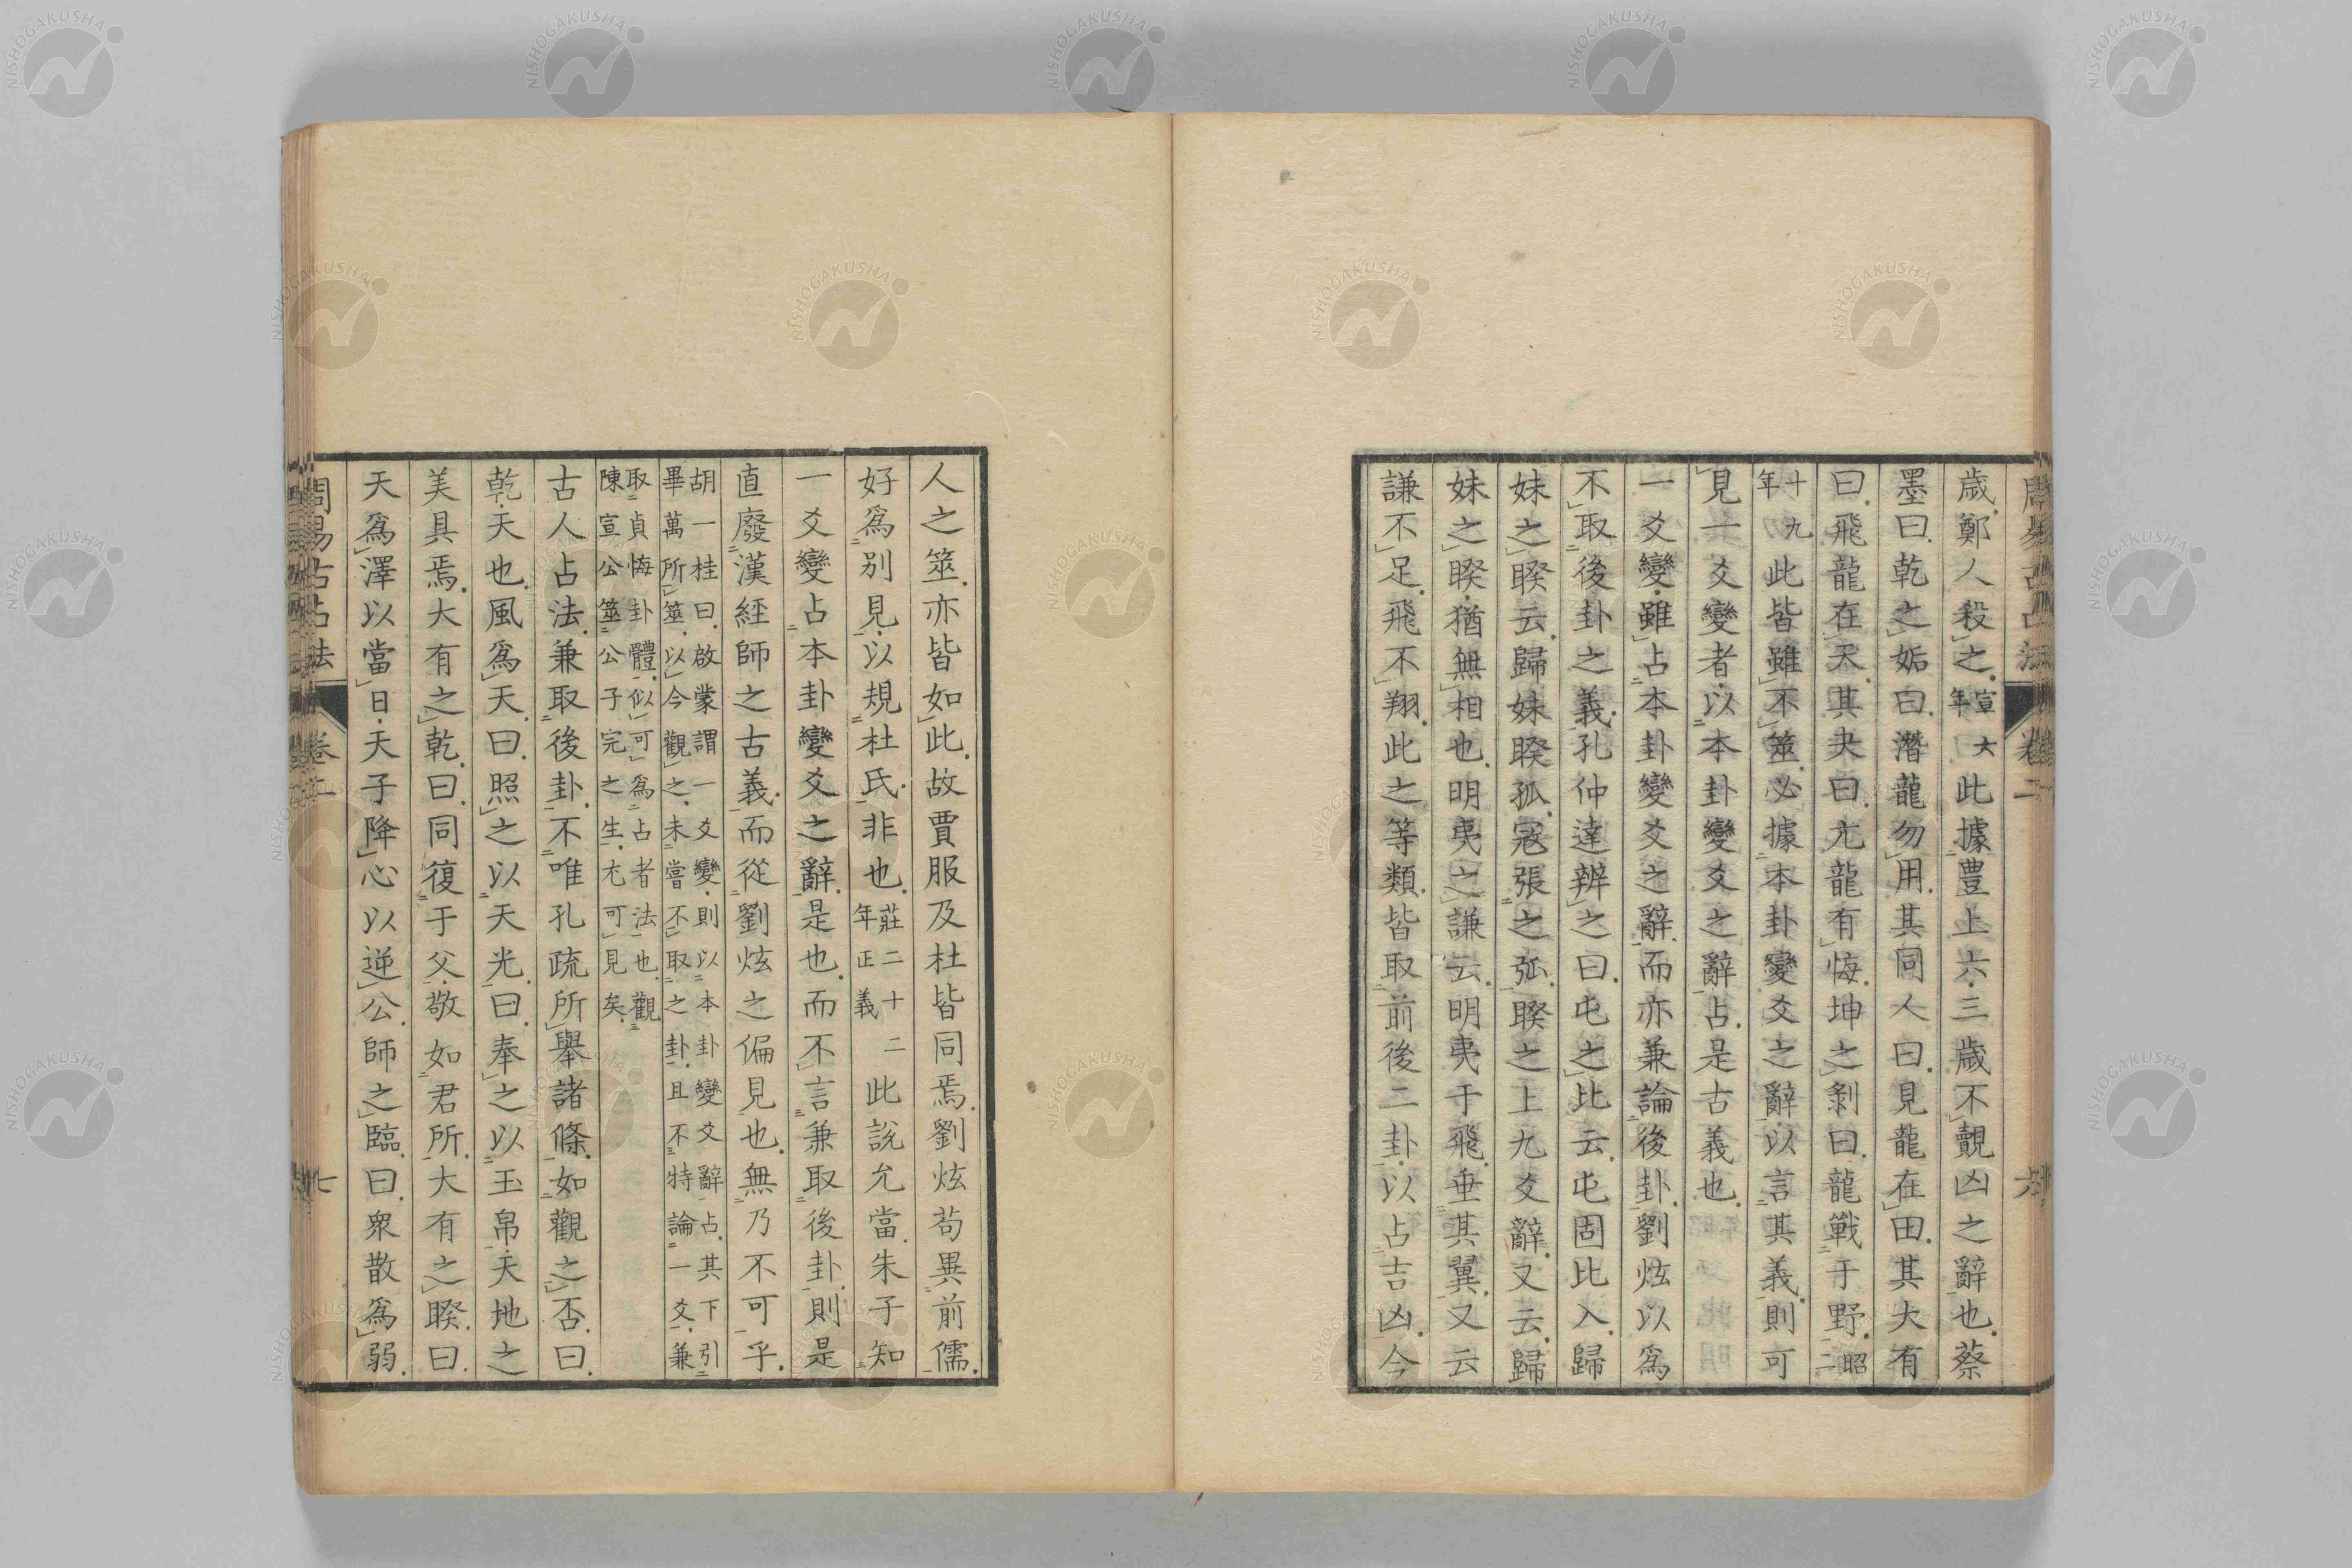 周易古占法 卷二 六
歲鄭人殺之宣六年此據豊上六三歲不覿凶之辭也蔡
墨曰乾之姤曰潛龍勿用其同人曰見龍在田其大有
曰飛龍在天其夬曰亢龍有悔坤之剥曰龍戰于野昭二
十九年此皆雖不筮必據本卦變爻之辭以言其義則可
見一爻變者以本卦變爻之辭占是古義也
一爻變雖占本卦變爻之辭而亦兼論後卦劉炫以爲
不取後卦之義孔仲達辨之曰屯之比云屯固比入歸
妹之睽云歸妹睽孤寇張之弧睽之上九爻辭又云歸
妹之睽猶無相也明夷之謙云明夷于飛垂其翼又云
謙不足飛不翔此之等類皆取前後二卦以占吉凶今
人之筮亦皆如此故賈服及杜皆同焉劉炫苟異前儒
好爲別見以規杜氏非也莊二十二年正義此說允當朱子知
一爻變占本卦變爻之辭是也而不言兼取後卦則是
直廢漢經師之古義而從劉炫之偏見也無乃不可乎
胡一桂曰啟蒙謂一爻變則以本卦變爻辭占其下引
畢萬所筮以今觀之未嘗不取之卦且不特論一爻兼
取貞悔卦體似可爲占者法也觀
陳宣公筮公子完之生尢可見矣
古人占法兼取後卦不唯孔疏所舉諸條如觀之否曰
乾天也風爲天曰照之以天光曰奉之以玉帛天地之
美具焉大有之乾曰同復于父敬如君所大有之睽曰
天爲澤以當日天子降心以逆公師之臨曰衆散爲弱
周易古占法 卷二 七
NISHOGAKUSHA